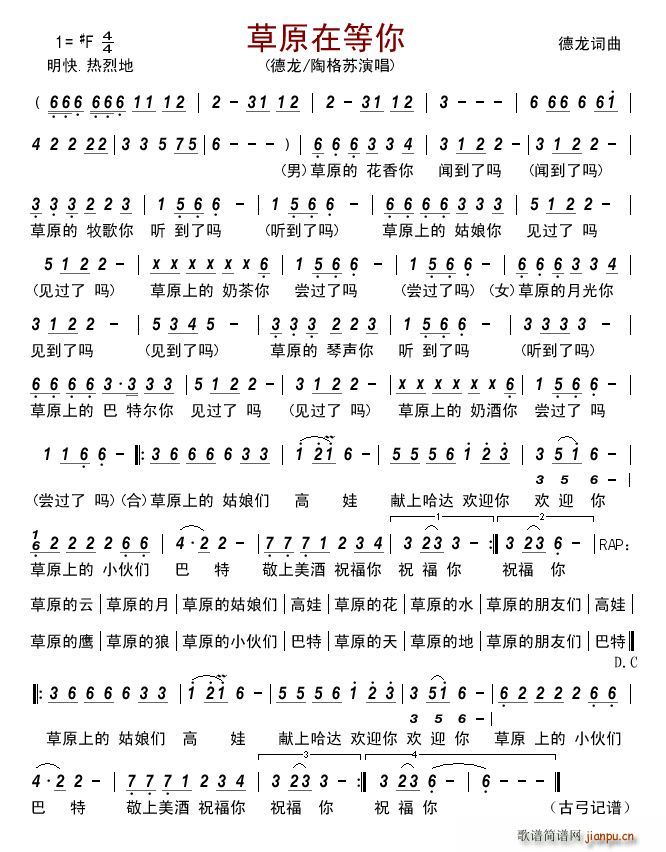 草原在等你
1=♯F 4/4
德龙词曲
明快.热烈地
(德龙/陶格苏演唱)
( 666 666 11 12 | 2 - 31 12 | 2 - 31 12 | 3 - - - | 6 66 6 61 |
4 2 2 22 | 3 3 5 75 | 6 - - - ) | 6 6 6 3 3 4 | 3 1 2 2 - | 3 1 2 2 - |
(男)草原的 花香你 闻到了吗 (闻到了吗)
3 3 3 2 2 3 | 1 5 6 6 - | 1 5 6 6 - | 6 6 6 6 3 3 3 | 5 1 2 2 - |
草原的 牧歌你 听 到了吗 (听到了吗) 草原上的 姑娘你 见过了 吗
5 1 2 2 - | x x x x x x 6 | 1 5 6 6 - | 1 5 6 6 - | 6 6 6 3 3 4 |
(见过了 吗) 草原上的 奶茶你 尝过了吗 (尝过了吗) (女)草原的月光你
3 1 2 2 - | 5 3 4 5 - | 3 3 3 2 2 3 | 1 5 6 6 - | 3 3 3 3 - |
见到了吗 (见到了吗) 草原的 琴声你 听 到了吗 (听到了吗)
6 6 6 6 3·3 3 3 | 5 1 2 2 - | 3 1 2 2 - | x x x x x x 6 | 1 5 6 6 - |
草原上的 巴 特尔你 见过了 吗 (见过了 吗) 草原上的 奶酒你 尝过了吗
1 1 6 6 - ‖: 3 6 6 6 6 3 3 | 1· 21 6 - | 5 5 5 6 1 2 3 | 3 51 6 - |
3 5 6 -
(尝过了 吗)(合)草原上的 姑娘们 高 娃 献上哈达 欢迎你 欢 迎 你
1/6 2 2 2 2 6 6 | 4·2 2 - | 7 7 7 1 2 3 4 | 1 3 23 3 - :‖ 2 3 23 6 - | RAP:
草原上的 小伙们 巴 特 敬上美酒 祝福你 祝 福 你 祝福 你
草原的云|草原的月|草原的姑娘们|高娃|草原的花|草原的水|草原的朋友们|高娃|
草原的鹰|草原的狼|草原的小伙们|巴特|草原的天|草原的地|草原的朋友们|巴特‖
D.C
‖: 3 6 6 6 6 3 3 | 1· 21 6 - | 5 5 5 6 1 2 3 | 3 51 6 - | 6 2 2 2 2 6 6 |
3 5 6 -
草原上的 姑娘们 高 娃 献上哈达 欢迎你 欢 迎 你 草原 上的 小伙们
4·2 2 - | 7 7 7 1 2 3 4 | 3 3 23 3 - :‖ 4 3 23 6 - | 6 - - - ‖
巴 特 敬上美酒 祝福你 祝福 你 祝 福 你 (古弓记谱)
歌谱简谱网
jianpu.cn